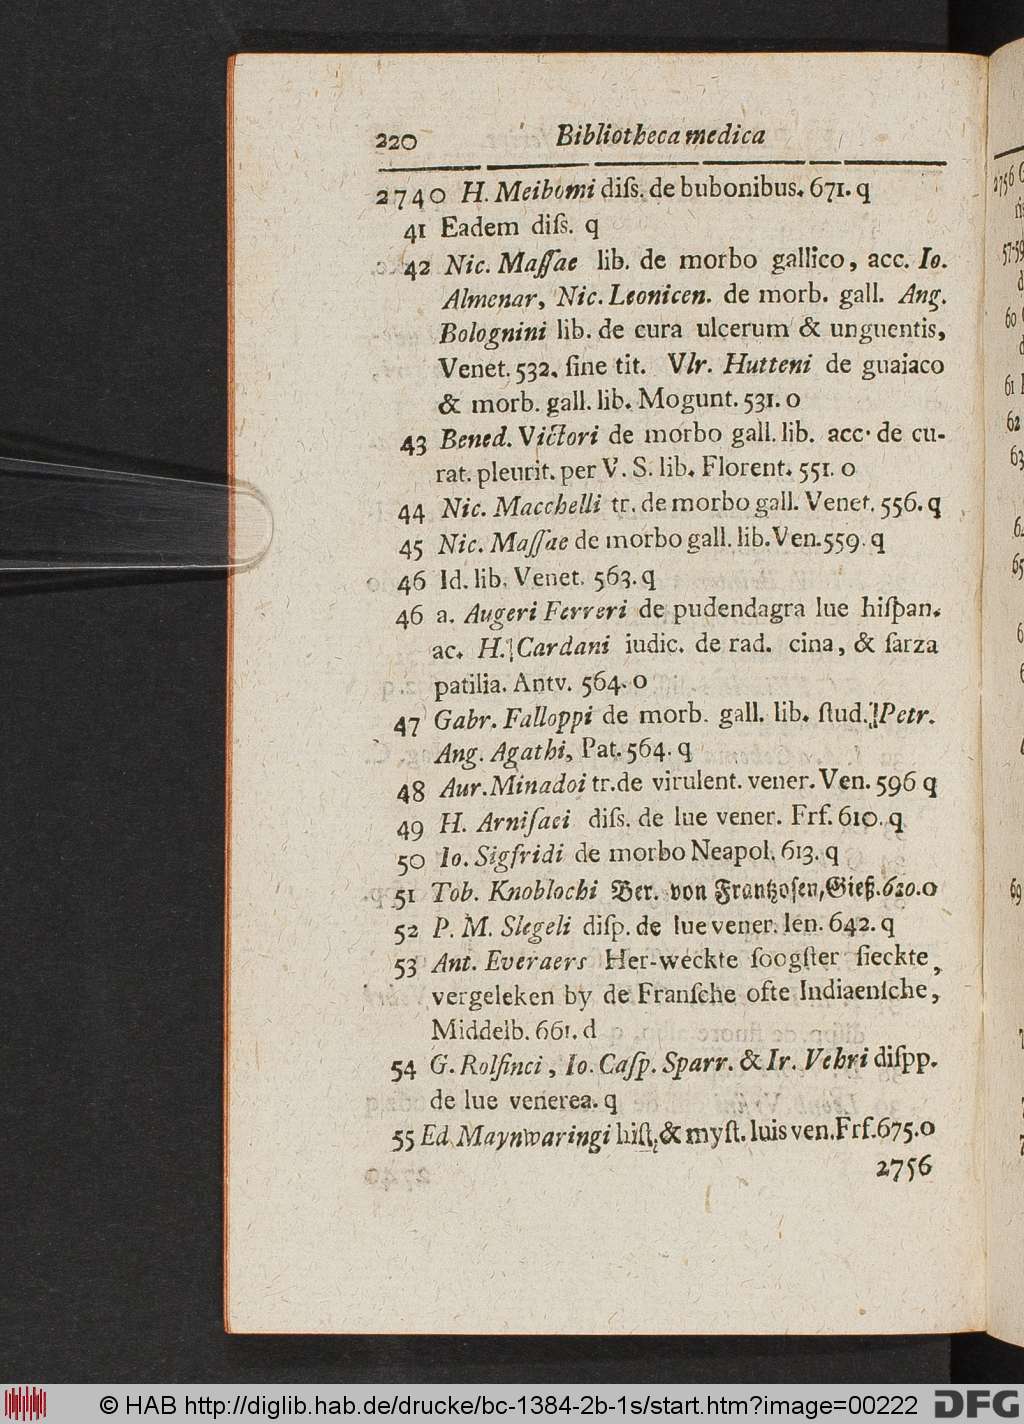 220 Bibliotheca medica
2740 H. Meibomi diſs. de bubonibus. 671. q
41 Eadem diſs. q
42 Nic. Maſſae lib. de morbo gallico, acc. Io.
Almenar, Nic. Leonicen. de morb. gall. Ang.
Bolognini lib. de cura ulcerum & unguentis,
Venet. 532. ſine tit. Vlr. Hutteni de guaiaco
& morb. gall. lib. Mogunt. 531. o
43 Bened. Victori de morbo gall. lib. acc. de cu-
rat. pleurit. per V. S. lib. Florent. 551. o
44 Nic. Macchelli tr. de morbo gall. Venet. 556. q
45 Nic. Maſſae de morbo gall. lib. Ven. 559. q
46 Id. lib. Venet. 563. q
46 a. Augeri Ferreri de pudendagra lue hiſpan.
ac. H. Cardani iudic. de rad. cina, & ſarza
patilia. Antv. 564. o
47 Gabr. Falloppi de morb. gall. lib. ſtud. Petr.
Ang. Agathi, Pat. 564. q
48 Aur. Minadoi tr. de virulent. vener. Ven. 596 q
49 H. Arniſaei diſs. de lue vener. Frf. 610. q
50 Io. Sigfridi de morbo Neapol. 613. q
51 Tob. Knoblochi Ber. von Frantzoſen, Gieß. 620. o
52 P. M. Slegeli diſp. de lue vener. Ien. 642. q
53 Ant. Everaers Her-weckte ſoogſter ſieckte,
vergeleken by de Franſche ofte Indiaenſche,
Middelb. 661. d
54 G. Rolfinci, Io. Caſp. Sparr. & Ir. Vehri diſpp.
de lue venerea. q
55 Ed Maynwaringi hiſt. & myſt. luis ven. Frf. 675. o
2756
2756
57-59
60
61
62
63
65
69
© HAB http://diglib.hab.de/drucke/bc-1384-2b-1s/start.htm?image=00222
DFG